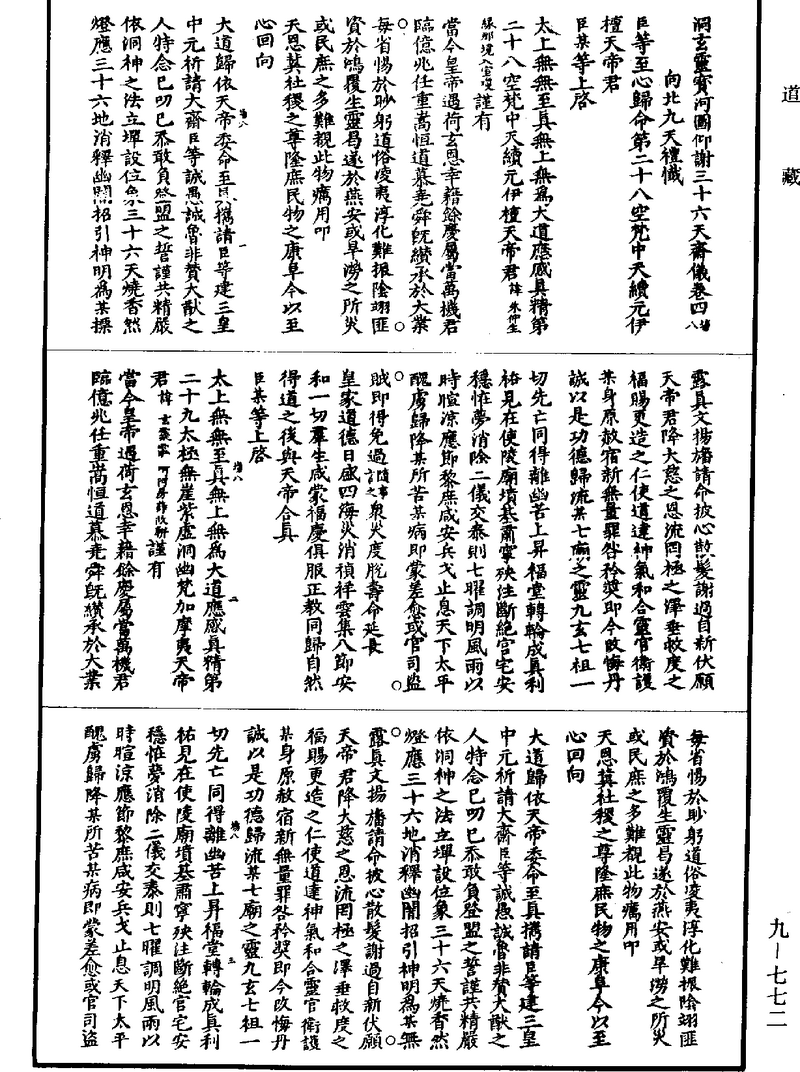 道藏
洞玄靈寶河圖仰謝三十六天齋儀卷四
向北九天禮懺
臣等至心歸命第二十八空梵中天續元伊
檀天帝君
臣某等上啓
太上無無至真無上無為大道應感真精第
二十八空梵中天續元伊檀天帝君諱
謹有
當今皇帝遇荷玄恩幸藉餘慶屬當萬機君
臨億兆任重嵩恒道慕堯舜既纘承於大業
每省惕於眇躬道俗凌夷淳化難振陰翊匪
資於鴻覆生靈曷遂於燕安或旱澇之所災
或民庶之多難覩此物癘用叩
天恩冀社稷之尊隆庶民物之康阜今以至
心回向
大道歸依天帝委命至真攜請臣等建三皇
中元祈請大齋臣等誠愚誠魯非贊大猷之
人特念已叨已忝敢負登盟之誓謹共精嚴
依洞神之法立壇設位象三十六天燒香然
燈應三十六地消釋幽關招引神明為某操
露真文揚旛請命披心散髮謝過自新伏願
天帝君降大慈之恩流罔極之澤垂救度之
福賜更造之仁使道達神氣和合靈官衛護
某身原赦宿新無量罪咎矜獎即今改悔丹
誠以是功德歸流某七廟之靈九玄七祖一
切先亡同得離幽苦上昇福堂轉輪成真利
祐見在使陵廟墳墓肅寧殃注斷絕官宅安
穩惟夢消除二儀交泰則七曜調明風雨以
時暄涼應節黎庶咸安兵戈止息天下太平
醜虜歸降某所苦某病即蒙差愈或官司盜
賊即得免過隨事言之衆災度脫壽命延長
皇家道德日盛四海災消禎祥雲集八節安
和一切羣生咸蒙福慶俱服正教同歸自然
得道之後與天帝合真
臣某等上啓
太上無無至真無上無為大道應感真精第
二十九太極無崖紫虛洞幽梵加摩夷天帝
君諱
謹有
當今皇帝遇荷玄恩幸藉餘慶屬當萬機君
臨億兆任重嵩恒道慕堯舜既纘承於大業
每省惕於眇躬道俗凌夷淳化難振陰翊匪
資於鴻覆生靈曷遂於燕安或旱澇之所災
或民庶之多難覩此物癘用叩
天恩冀社稷之尊隆庶民物之康阜今以至
心回向
大道歸依天帝委命至真攜請臣等建三皇
中元祈請大齋臣等誠愚誠魯非贊大猷之
人特念已叨已忝敢負登盟之誓謹共精嚴
依洞神之法立壇設位象三十六天燒香然
燈應三十六地消釋幽關招引神明為某無
露真文揚旛請命披心散髮謝過自新伏願
天帝君降大慈之恩流罔極之澤垂救度之
福賜更造之仁使道達神氣和合靈官衛護
某身原赦宿新無量罪咎矜獎即今改悔丹
誠以是功德歸流某七廟之靈九玄七祖一
切先亡同得離幽苦上昇福堂轉輪成真利
祐見在使陵廟墳墓肅寧殃注斷絕官宅安
穩惟夢消除二儀交泰則七曜調明風雨以
時暄涼應節黎庶咸安兵戈止息天下太平
醜虜歸降某所苦某病即蒙差愈或官司盜
九—七七二